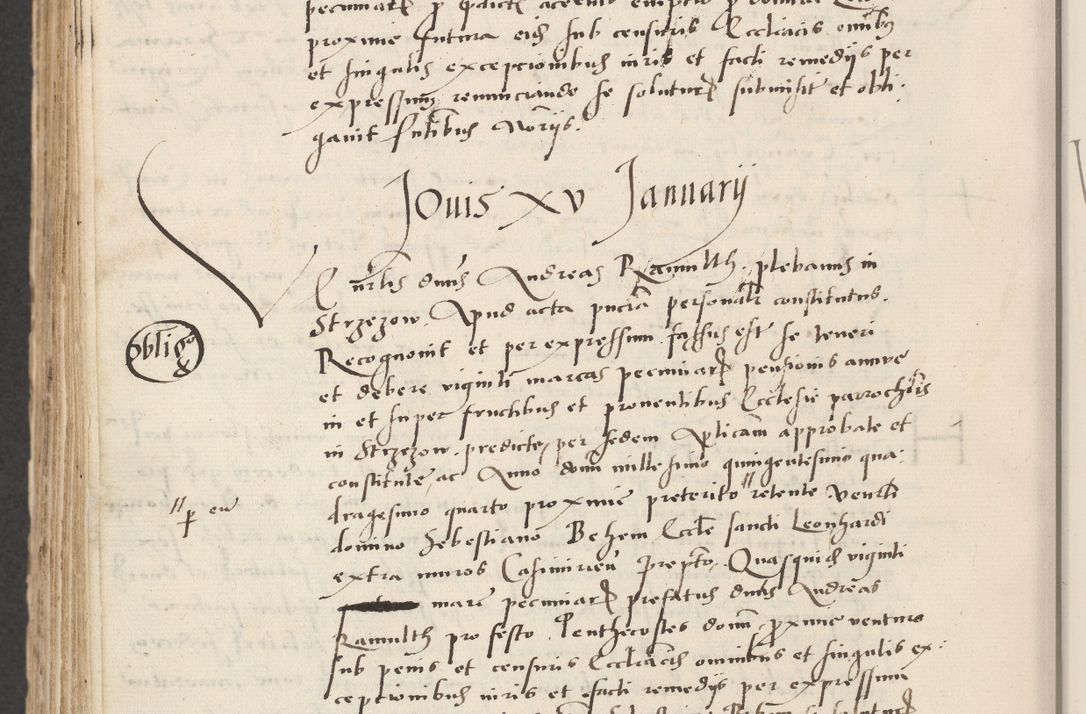 proxime futura eisdem sub censuris Ecclīacis omībꝫ
et singulis excepcionibus iuris et facti remedijs per
expressum renunciando se soluturꝝ submisit et obli-
gauit Pn̄tibus Norijs.
Jouis XV Januarij
hon̄rblis dn̄us Andreas Ramulth, plebanus in
Strzezow. Apud acta pn̄cia personalr̄ constitutus.
Recognouit et per expressum fassus est se teneri
et debere viginti marcas pecuniarꝝ pensionis annue
in et super fructibus et prouentibus Ecclesie parrochīlis
in Strzezow. predicte, per sedem Ap̄licam approbate et
constitute, ac Anno dom̄ millesimo quingentesimo qua-
dragesimo quarto proxime preterito // retente Ven̄bli
domino Sebestiano Behem Eccl̄e sancti Leonhardi
extra muros Casimirień Prep̄to. Quasquidem viginti
marc̄ pecuniarꝝ prefatus dn̄us Andreas
Ramulth pro festo Penthecostes dom̄ proxime venturo
sub penis et censuris Eccl̄iacis omnibus et singulis ex-
cepcionibus iuris et facti remedijs per expressum
obligo
// p eū